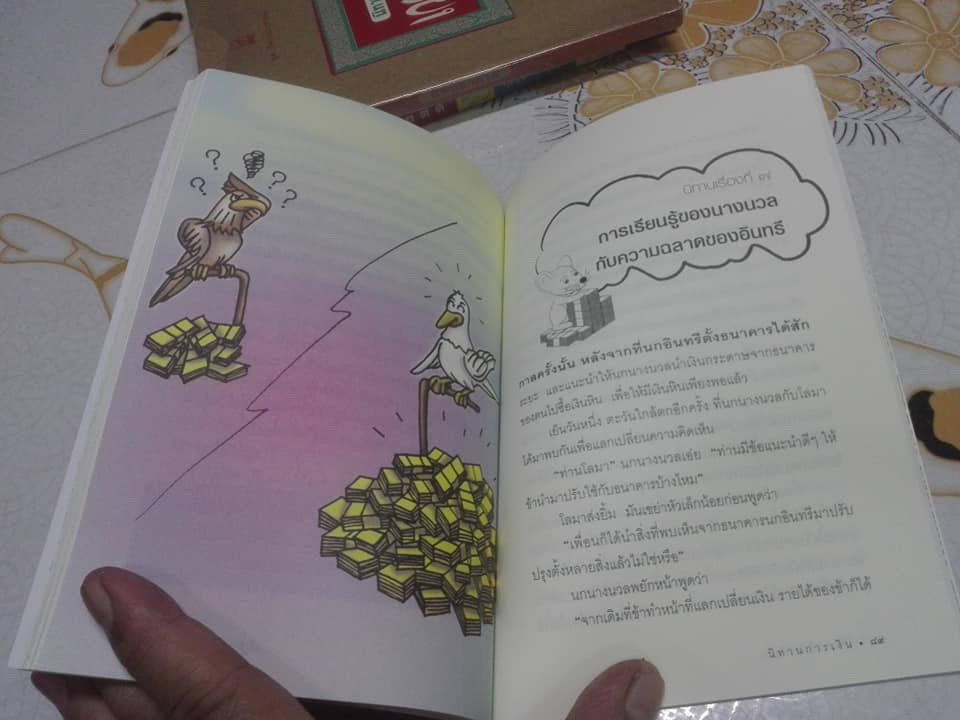 ?
?
?
?
นิทานเรื่องที่ ๗
การเรียนรู้ของนางนวล
กับความฉลาดของอินทรี
กาลครั้งนั้น หลังจากที่นกอินทรีตั้งธนาคารได้สัก
ระยะ และแนะนำให้นกนางนวลนำเงินกระดาษจากธนาคาร
ของตนไปซื้อเงินหิน เพื่อให้มีเงินหินเพียงพอแล้ว
เย็นวันหนึ่ง ตะวันใกล้ตกอีกครั้ง ที่นกนางนวลกับโลมา
ได้มาพบกันเพื่อแลกเปลี่ยนความคิดเห็น
“ท่านโลมา” นกนางนวลเอ่ย “ท่านมีข้อแนะนำดีๆ ให้
ข้านำมาปรับใช้กับธนาคารบ้างไหม”
โลมาส่งยิ้ม มันเขย่าหัวเล็กน้อยก่อนพูดว่า
“เพื่อนก็ได้นำสิ่งที่พบเห็นจากธนาคารนกอินทรีมาปรับ
ปรุงตั้งหลายสิ่งแล้วไม่ใช่หรือ”
นกนางนวลพยักหน้าพูดว่า
“จากเดิมที่ข้าทำหน้าที่แลกเปลี่ยนเงิน รายได้ของข้าก็ได้
นิทานการเงิน • ๘๙